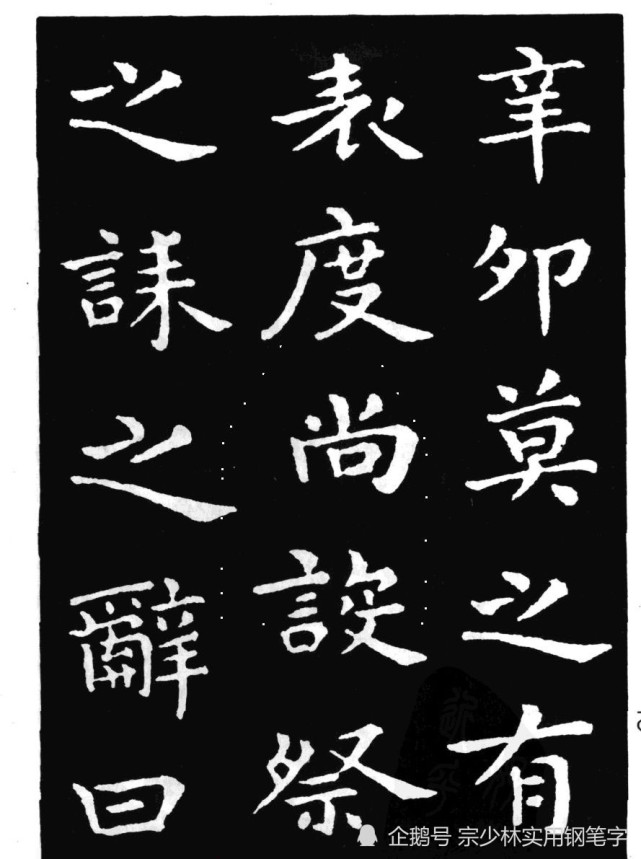 辛卯莫之有
表度尚設祭
之誄之辭曰
企鹅号 宗少林实用钢笔字